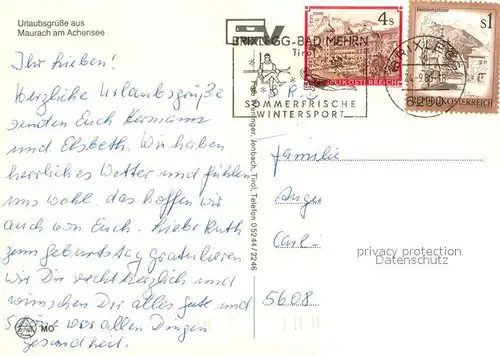 Urlaubsgrüße aus
Maurach am Achensee
Ihr Lieben!
Herzliche Urlaubsgrüße
senden Euch Hermann
und Elsbeth. Wir haben
herrliches Wetter und fühlen
uns wohl, das hoffen wir
auch von Euch. Liebe Ruth
zum Geburtstag gratulieren
wir Dir recht herzlich und
wünschen Dir alles gute und
Schöne vor allen Dingen
Gesundheit.
MO
BRIXLEGG-BAD MEHRN
Tirol
SOMMERFRISCHE
WINTERSPORT
4s
REPUBLIK ÖSTERREICH
S1
REPUBLIK ÖSTERREICH
BRIXLEGG
Jenbach, Tirol, Telefon 05244/2246
Familie
Carl
5608
privacy protection
Datenschutz